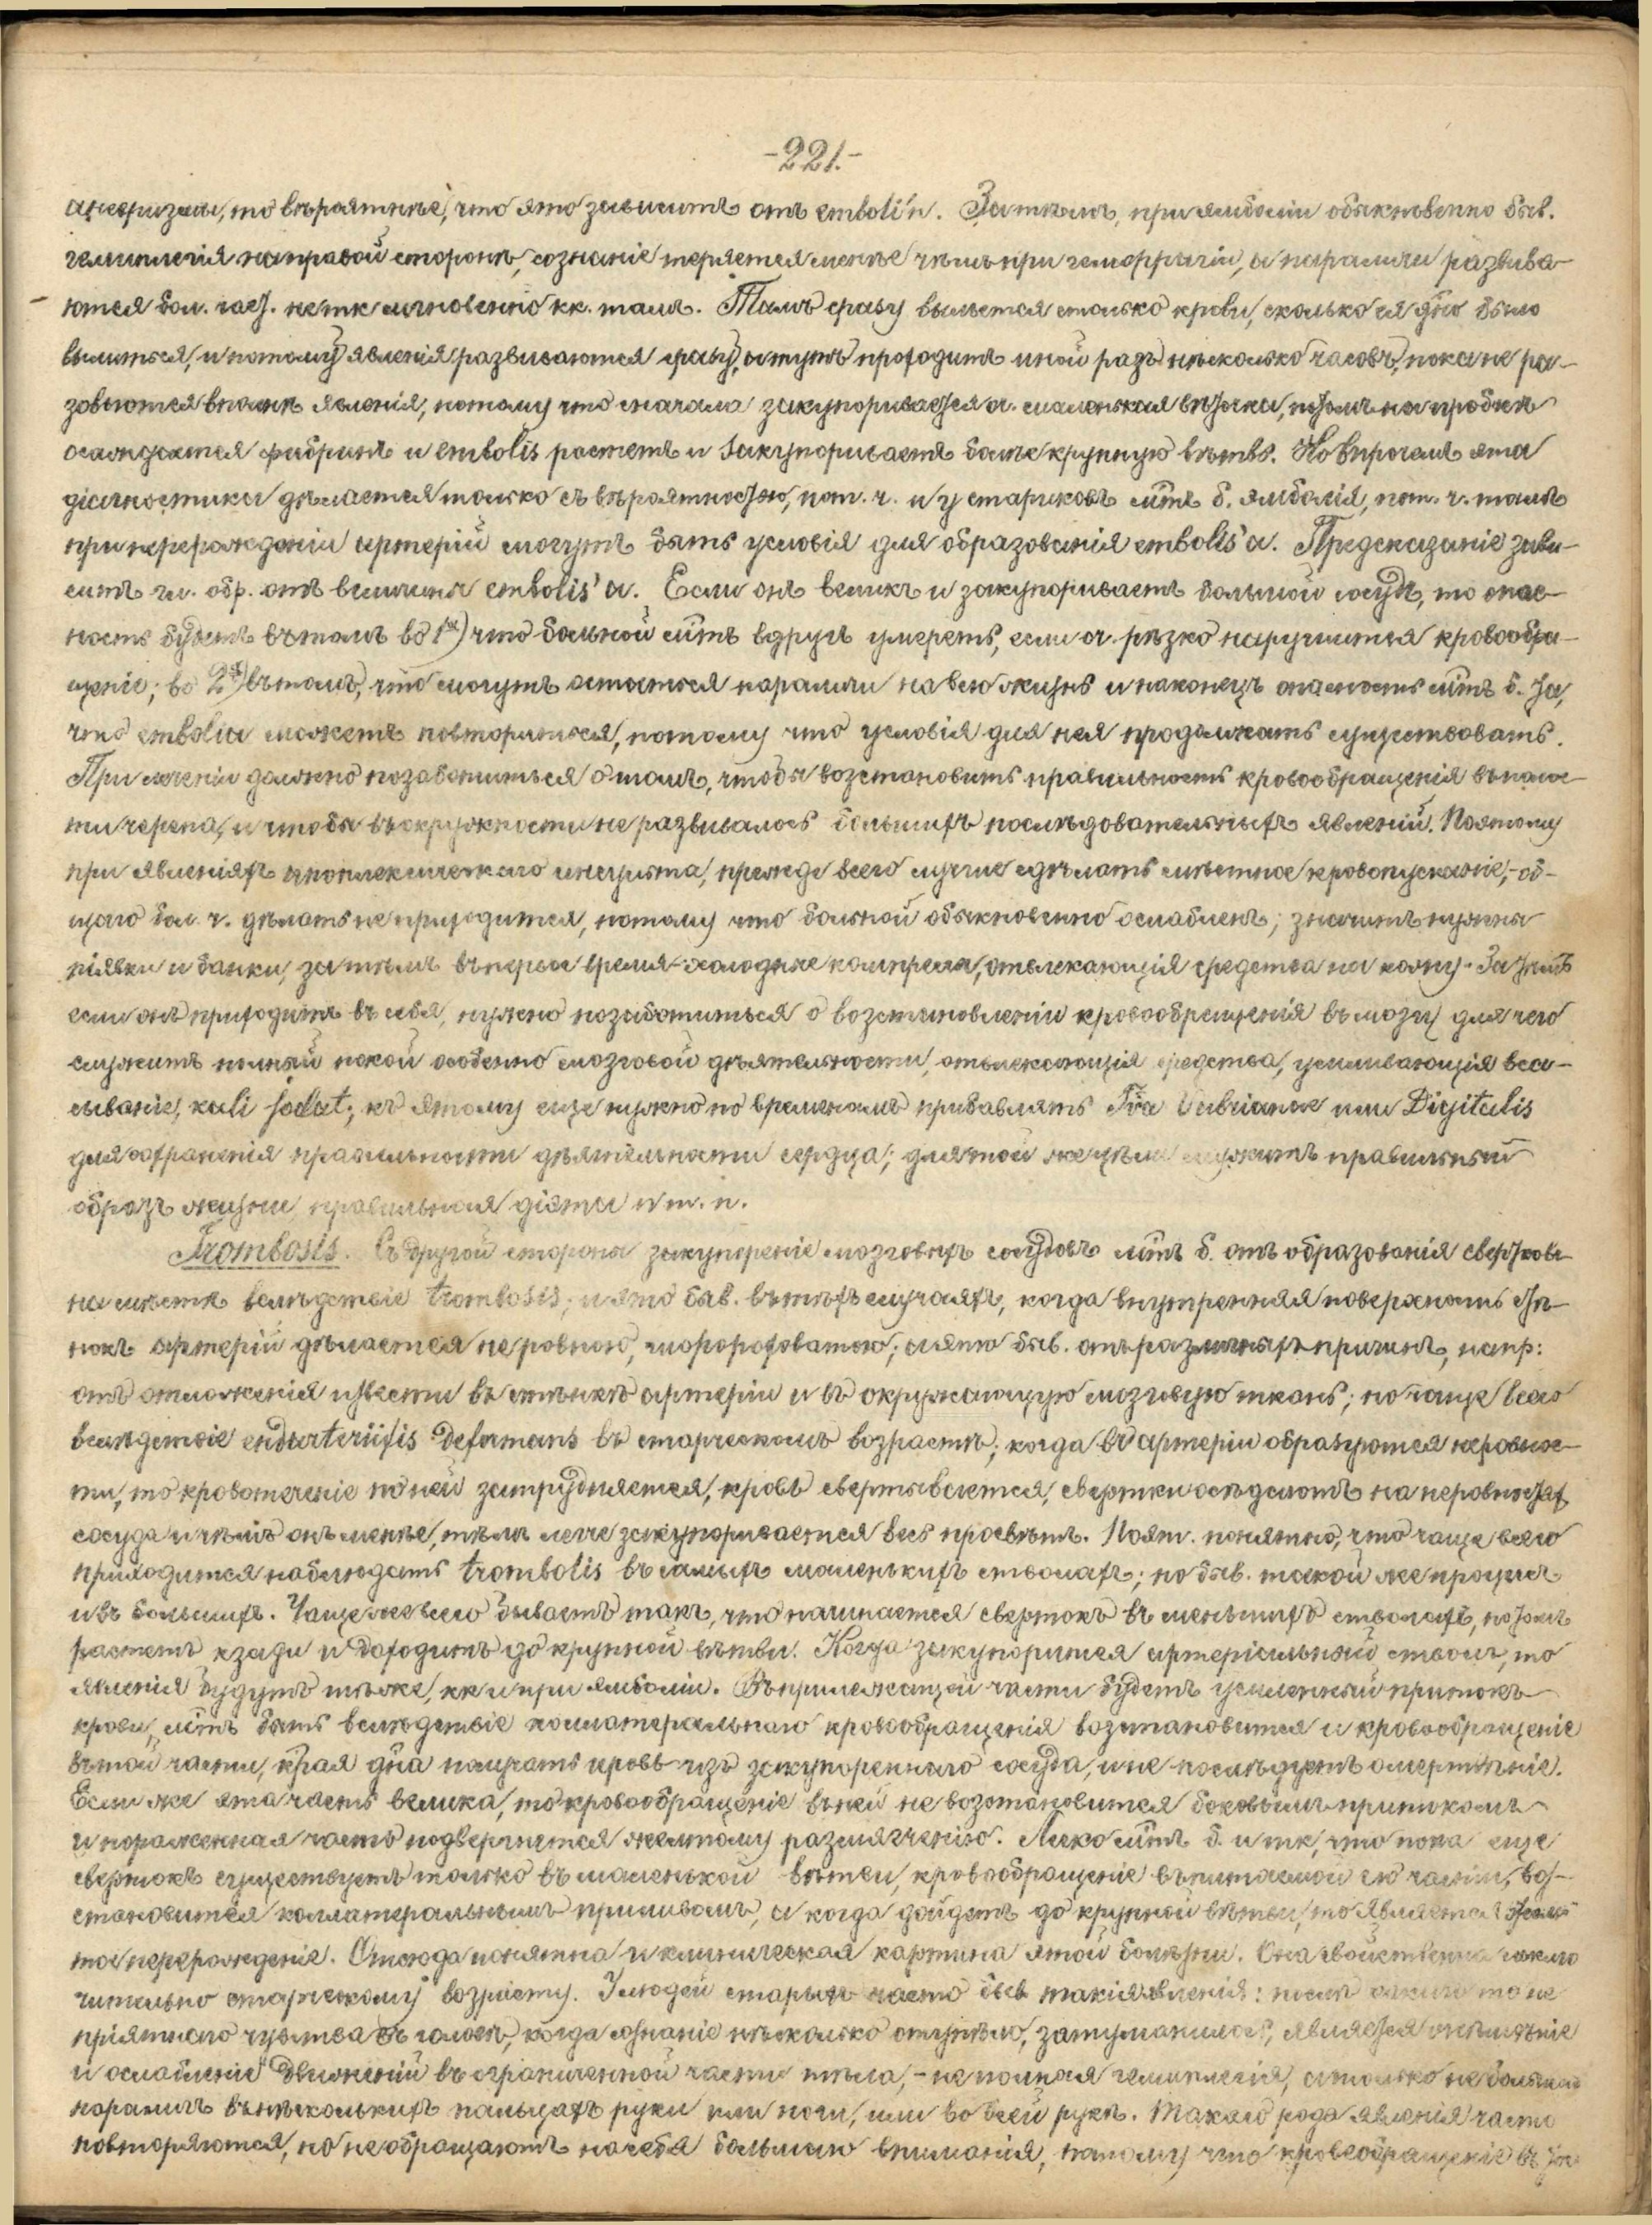 -221.-
аневризмы, то вѣроятнѣе, что это зависитъ отъ emboli'и. Затѣмъ, при эмболіи обыкновенно быв.
гемиплегія на правой сторонѣ, сознаніе теряется менѣе чѣмъ при геморрагіи, а параличи развива-
ются бол. част. не тк мгновенно кк. тамъ. Тамъ сразу выльется столько крови, сколько ея дно было
вылиться, и потому явленія развиваются сразу, а тутъ проходитъ иной разъ нѣсколько часовъ, пока не ра-
зовьются вполнѣ явленія, потому что сначала закупоривается а. маленькая вѣточка, потомъ на пробкѣ
осаждается фибринъ и embolis растетъ и закупориваетъ болѣе крупную вѣтвь. Но впрочемъ эта
діагностика дѣлается только съ вѣроятностью, пот. ч. и у стариковъ мтъ б. эмболія, пот. ч. тамъ
при перерожденіи артерій могутъ быть условія для образованія embolis'а. Предсказаніе зави-
ситъ гл. обр. отъ величины embolis'а. Если онъ великъ и закупориваетъ большой сосудъ, то опас-
ность будетъ въ томъ во 1хъ) что больной мтъ вдругъ умереть, если оч. рѣзко нарушится кровообра-
щеніе; во 2хъ) въ томъ, что могутъ остаться параличи на всю жизнь и наконецъ опасность мтъ б. та,
что embolia можетъ повториться, потому что условія для нея продолжатъ существовать.
При леченіи должно позаботиться о томъ, чтобы возстановить правильность кровообращенія въ полос-
ти черепа, и чтобы въ окружности не развивалось большихъ послѣдовательныхъ явленій. Поэтому
при явленіяхъ апоплексическаго инсульта, прежде всего лучше сдѣлать мѣстное кровопусканіе,- об-
щаго бол. ч. дѣлать не приходится, потому что больной обыкновенно ослабленъ; значитъ нужны
піявки и банки, затѣмъ въ первое время - холодные компрессы, отвлекающія средства на кожу. Затѣмъ
если онъ приходитъ въ себя, нужно позаботиться о возстановленіи кровообращенія въ мозгу для чего
служитъ полный покой особенно мозговой дѣятельности, отвлекающія средства, усиливающія вса-
сываніе, kali jodat; къ этому еще нужно по временамъ прибавлять T-ra Valerianae или Digitalis
для сохраненія правильности дѣятельности сердца; для той же цѣли служитъ правильный
образъ жизни, правильная діэта и т. п.
Trombosis. Съ другой стороны закупореніе мозговыхъ сосудовъ мтъ б. отъ образованія свертковъ
на мѣстѣ вслѣдствіе trombosis; и это быв. въ тѣхъ случаяхъ, когда внутренняя поверхность стѣ-
нокъ артерій дѣлается неровною, шороховатою; а это быв. отъ различныхъ причинъ, напр:
отъ отложенія извести въ стѣнкѣ артеріи и въ окружающую мозговую ткань; но чаще всего
вслѣдствіе endarteriitis deformans въ старческомъ возрастѣ; когда въ артеріи образуются неровнос-
ти, то кровотеченіе по ней затрудняется, кровь свертывается, свертки осѣдаютъ на неровностях
сосуда и чѣмъ онъ менѣе, тѣмъ легче закупоривается весь просвѣтъ. Поэт. понятно, что чаще всего
приходится наблюдать trombolis въ самыхъ маленькихъ стволахъ; но быв. такой же процессъ
и въ большихъ. Чаще же всего бываетъ такъ, что начинается свертокъ въ меньшихъ стволахъ, потомъ
растетъ кзади и доходитъ до крупной вѣтви. Когда закупорится артеріальный стволъ, то
явленія будутъ тѣже, кк и при эмболіи. Въ прилежащей части будетъ усиленный притокъ
крови, мтъ быть вслѣдствіе коллатеральнаго кровообращенія возстановится и кровообращеніе
въ той части, край дна получать кровь изъ закупореннаго сосуда, и не послѣдуетъ омертвѣніе.
Если же эта часть велика, то кровообращеніе въ ней не возстановится боковымъ притокомъ
и пораженная часть подвергнется желтому размягченію. Легко мтъ б. и тк, что пока еще
свертокъ существуетъ только въ маленькой вѣтви, кровообращеніе въ питаемой ею части, воз-
становится коллатеральнымъ приливомъ, а когда дойдетъ до крупной вѣтви, то является желт
тое перерожденіе. Отсюда понятна и клиническая картина этой болѣзни. Она свойственна исклю
чительно старческому возрасту. У людей старыхъ часто быв такія явленія: послѣ какого то не
пріятнаго чувства въ головѣ, когда сознаніе нѣсколько отупѣло, затуманилось, является онѣмѣніе
и ослабленіе движеній въ ограниченной части тѣла, - не полная гемиплегія, а только небольшой
параличъ въ нѣсколькихъ пальцахъ руки или ноги, или во всей рукѣ. Такого рода явленія часто
повторяются, но не обращаютъ на себя большаго вниманія, потому что кровообращеніе въ